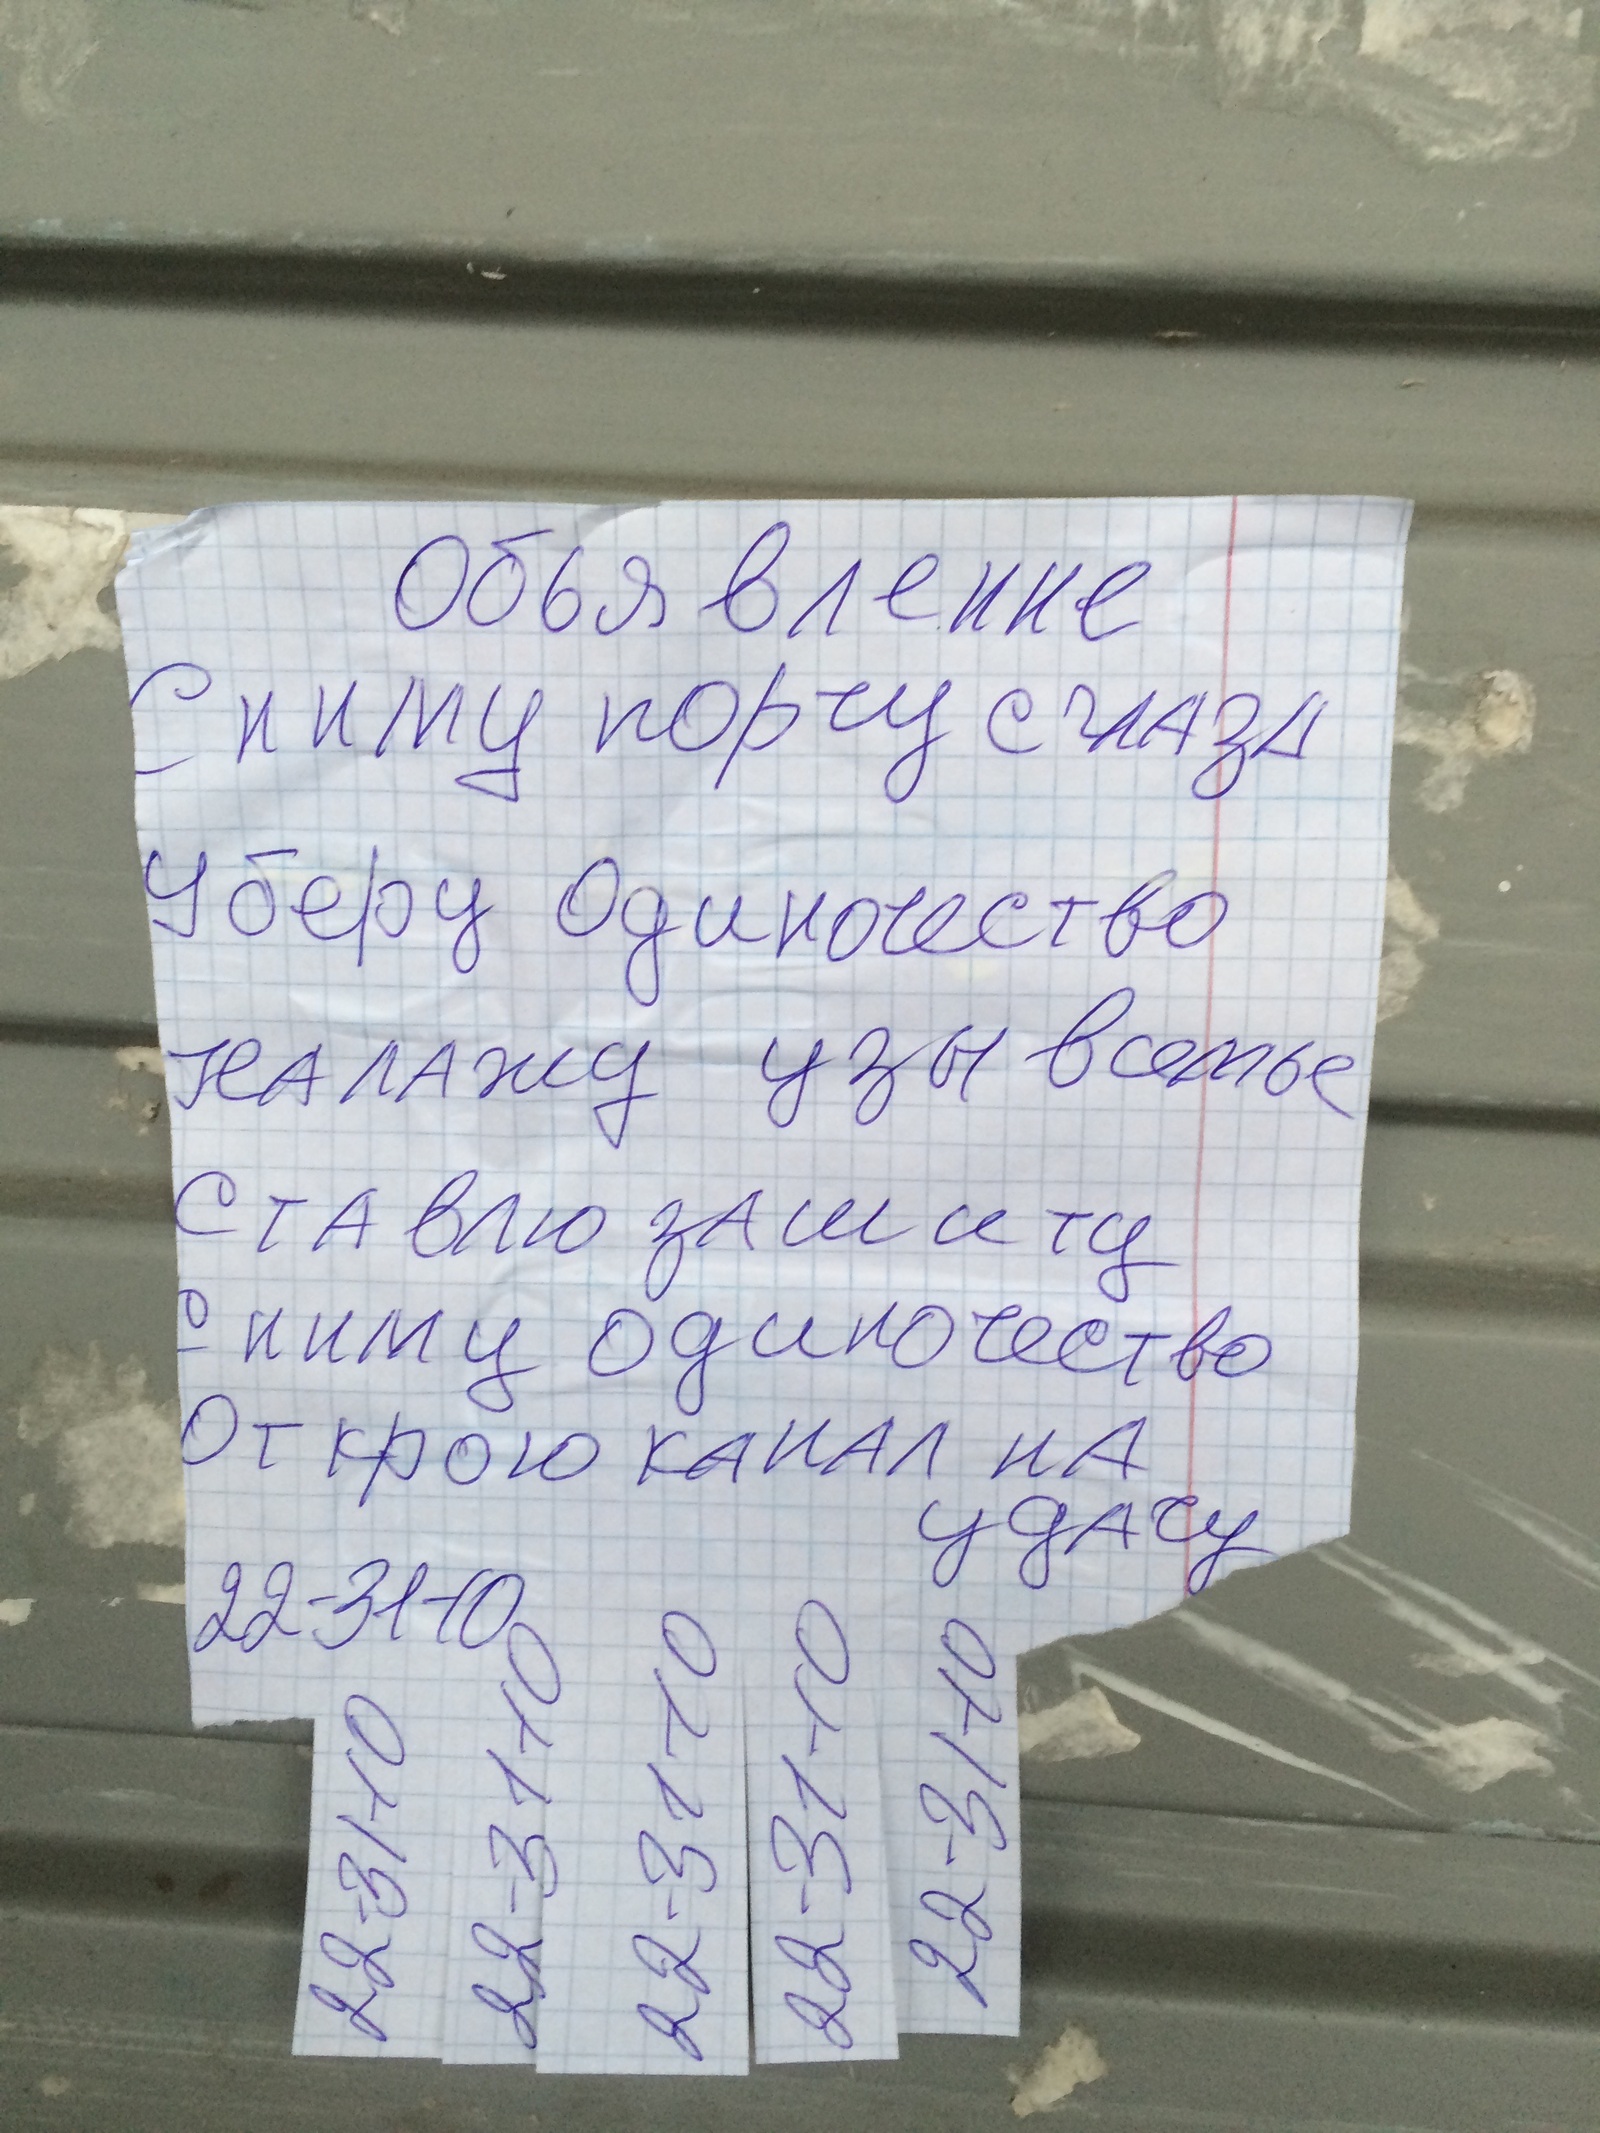 Обьявление
Сниму порчу сглаза
Уберу Одиночество
налажу узы всемье
Ставлю зашиту
сниму одиночество
Открою канал на
удачу
22-31-10
22-31-10
22-31-10
22-31-10
22-31-10
22-31-10